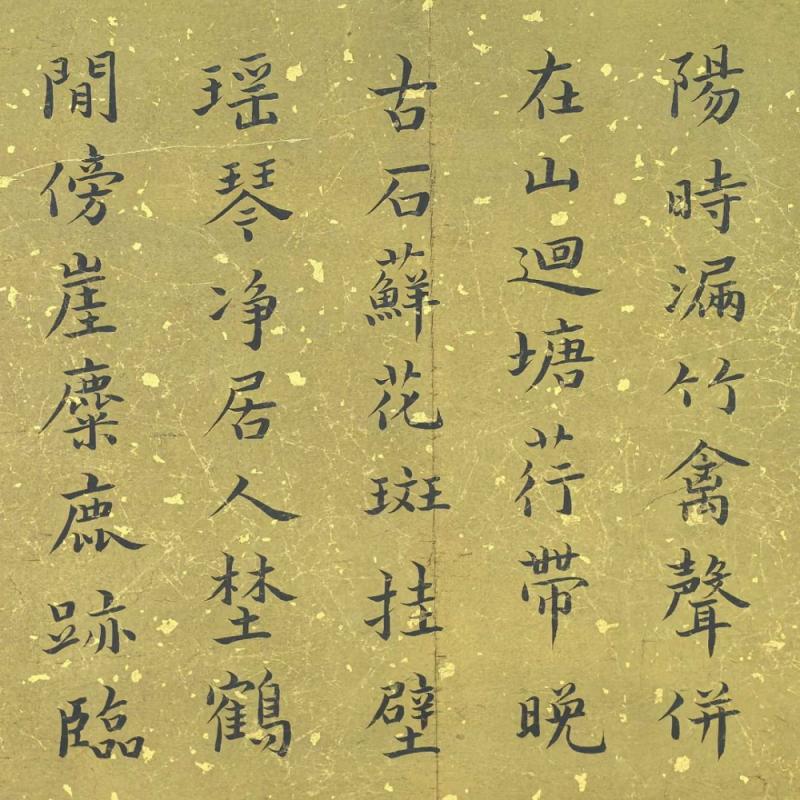 陽時漏竹禽聲併
在山迴塘荇帶晚
古石蘚花斑挂壁
瑶琴净居人埜鶴
閒傍崖麋鹿跡臨